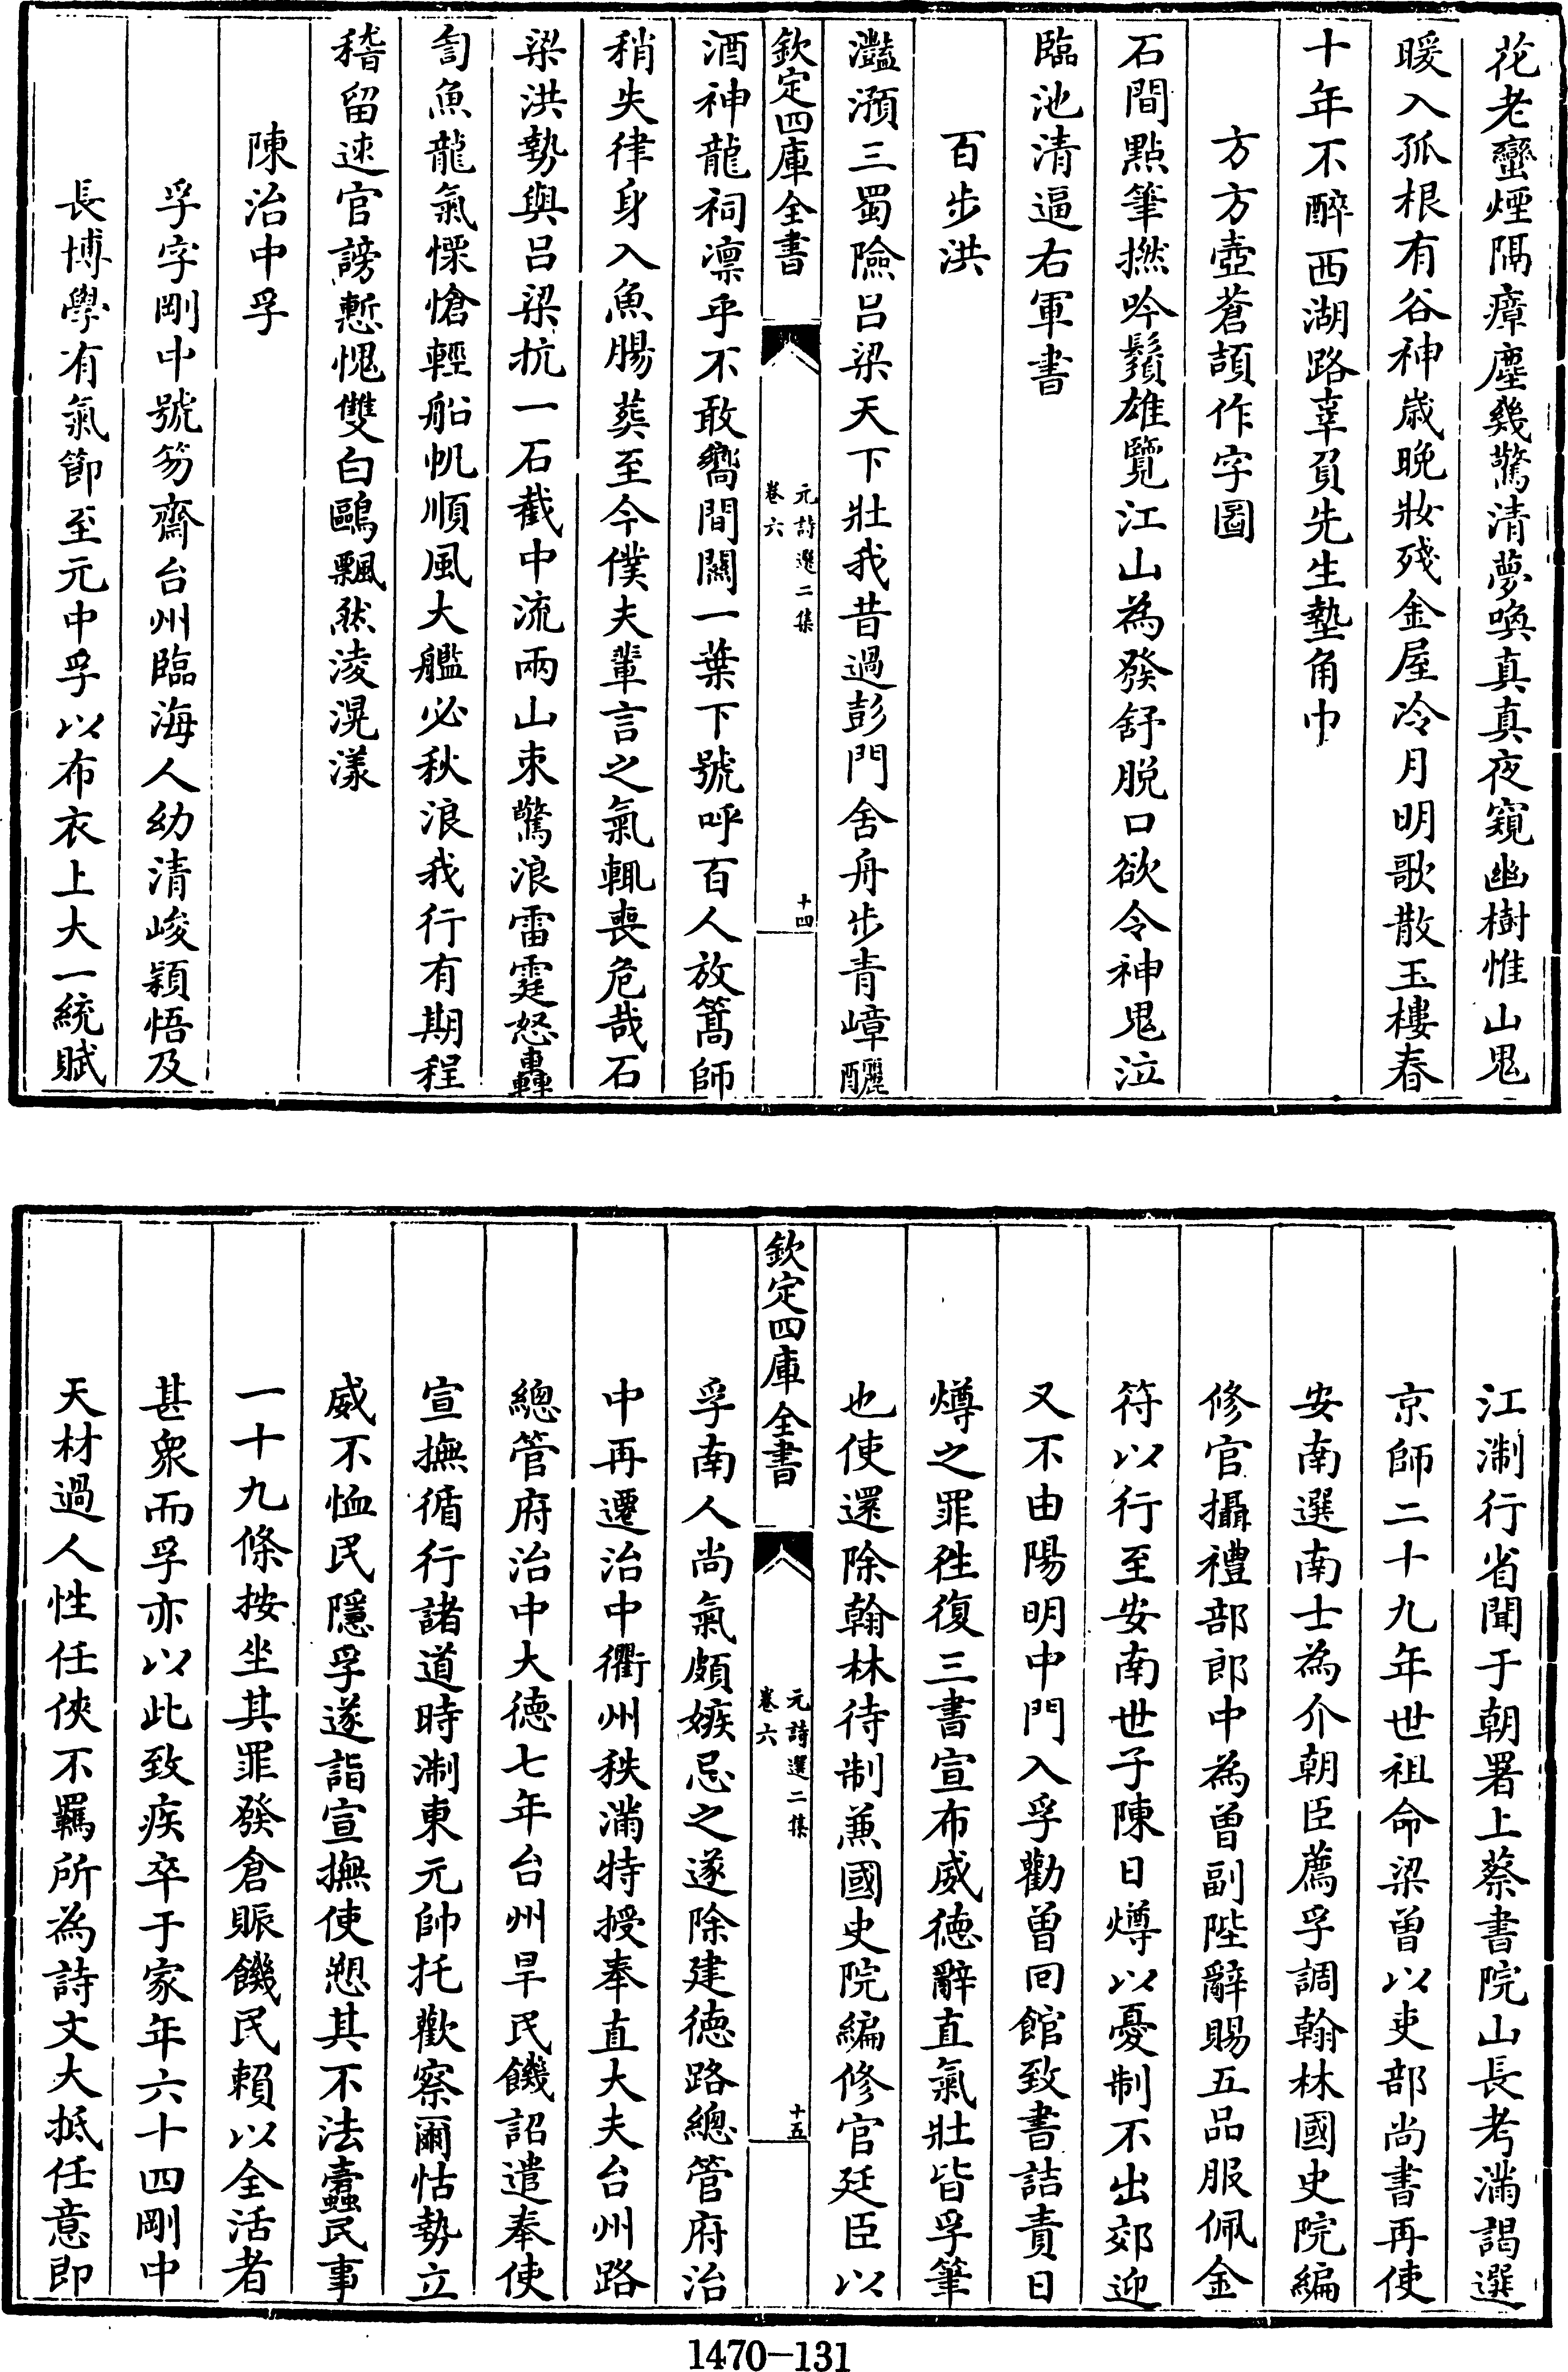 花老蠻煙隔瘴塵幾驚清夢喚真真夜窺幽樹惟山鬼
暖入孤根有谷神歲晚妝殘金屋冷月明歌散玉樓春
十年不醉西湖路辜負先生墊角巾
方方壺蒼頡作字圖
石間點筆撚吟鬚雄覽江山為發舒脱口欲令神鬼泣
臨池清逼右軍書
百步洪
灩澦三蜀險吕梁天下壯我昔過彭門舍舟步青嶂釃
欽定四庫全書
元詩選二集
卷六
十四
酒神龍祠凛乎不敢嚮間關一葉下號呼百人放篙師
稍失律身入魚腸葬至今僕夫輩言之氣輒喪危哉石
梁洪勢與吕梁抗一石截中流兩山束驚浪雷霆怒轟
訇魚龍氣慄愴輕船帆順風大艦必秋浪我行有期程
稽留速官謗慙愧雙白鷗飄然淩滉漾
陳治中孚
孚字剛中號笏齋台州臨海人幼清峻穎悟及
長博學有氣節至元中孚以布衣上大一統賦
江淛行省聞于朝署上蔡書院山長考滿謁選
京師二十九年世祖命梁曾以吏部尚書再使
安南選南士為介朝臣薦孚調翰林國史院編
修官攝禮部郎中為曾副陛辭賜五品服佩金
符以行至安南世子陳日燇以憂制不出郊迎
又不由陽明中門入孚勸曾回館致書詰責日
燇之罪徃復三書宣布威德辭直氣壯皆孚筆
也使還除翰林待制兼國史院編修官廷臣以
欽定四庫全書
元詩選二集
卷六
十五
孚南人尚氣頗嫉忌之遂除建德路總管府治
中再遷治中衢州秩滿特授奉直大夫台州路
總管府治中大德七年台州旱民饑詔遣奉使
宣撫循行諸道時淛東元帥托歡察爾怙勢立
威不恤民隱孚遂詣宣撫使愬其不法蠹民事
一十九條按坐其罪發倉賑饑民賴以全活者
甚衆而孚亦以此致疾卒于家年六十四剛中
天材過人性任俠不羈所為詩文大抵任意即
1470-131